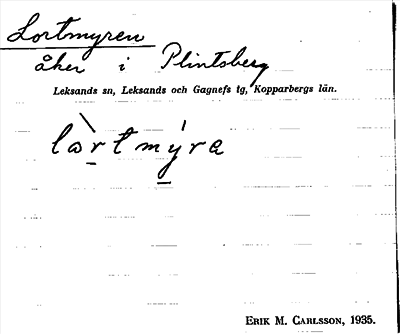 Lortmyren
åker i Plintsberg
Leksands sn, Leksands och Gagnefs tg, Kopparbergs län.
lòrtmýra
ERIK M. CARLSSON, 1935.